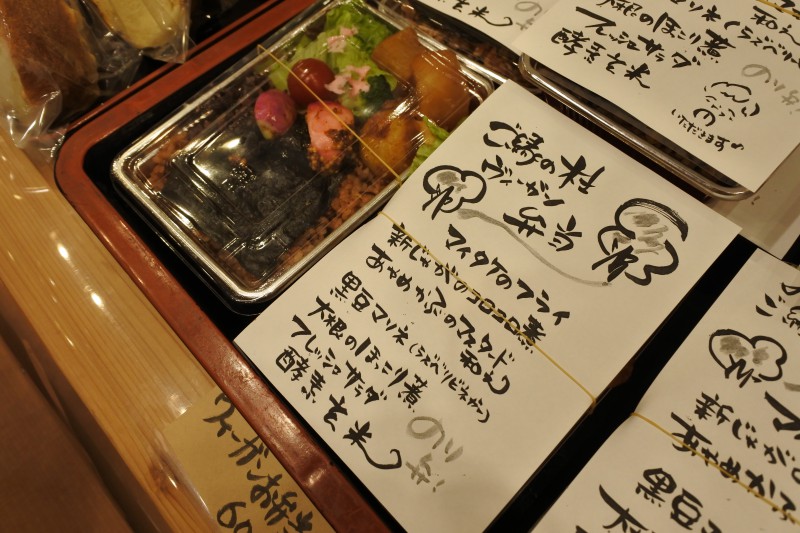 ご縁の杜
ヴィーガン
弁当
マイタケのフライ
新じゃがのコロコロ煮
あやめかぶのマスタード
和え
黒豆マリネ(ラズベリビネガー)
大根のほこり煮
フレッシュサラダ
酵素玄米
のり
弁
ヴィーガンお弁当
大根のほこり煮
フレッシュサラダ
酵素玄米
いただきます
新じゃが
あやめかぶ
黒豆マ